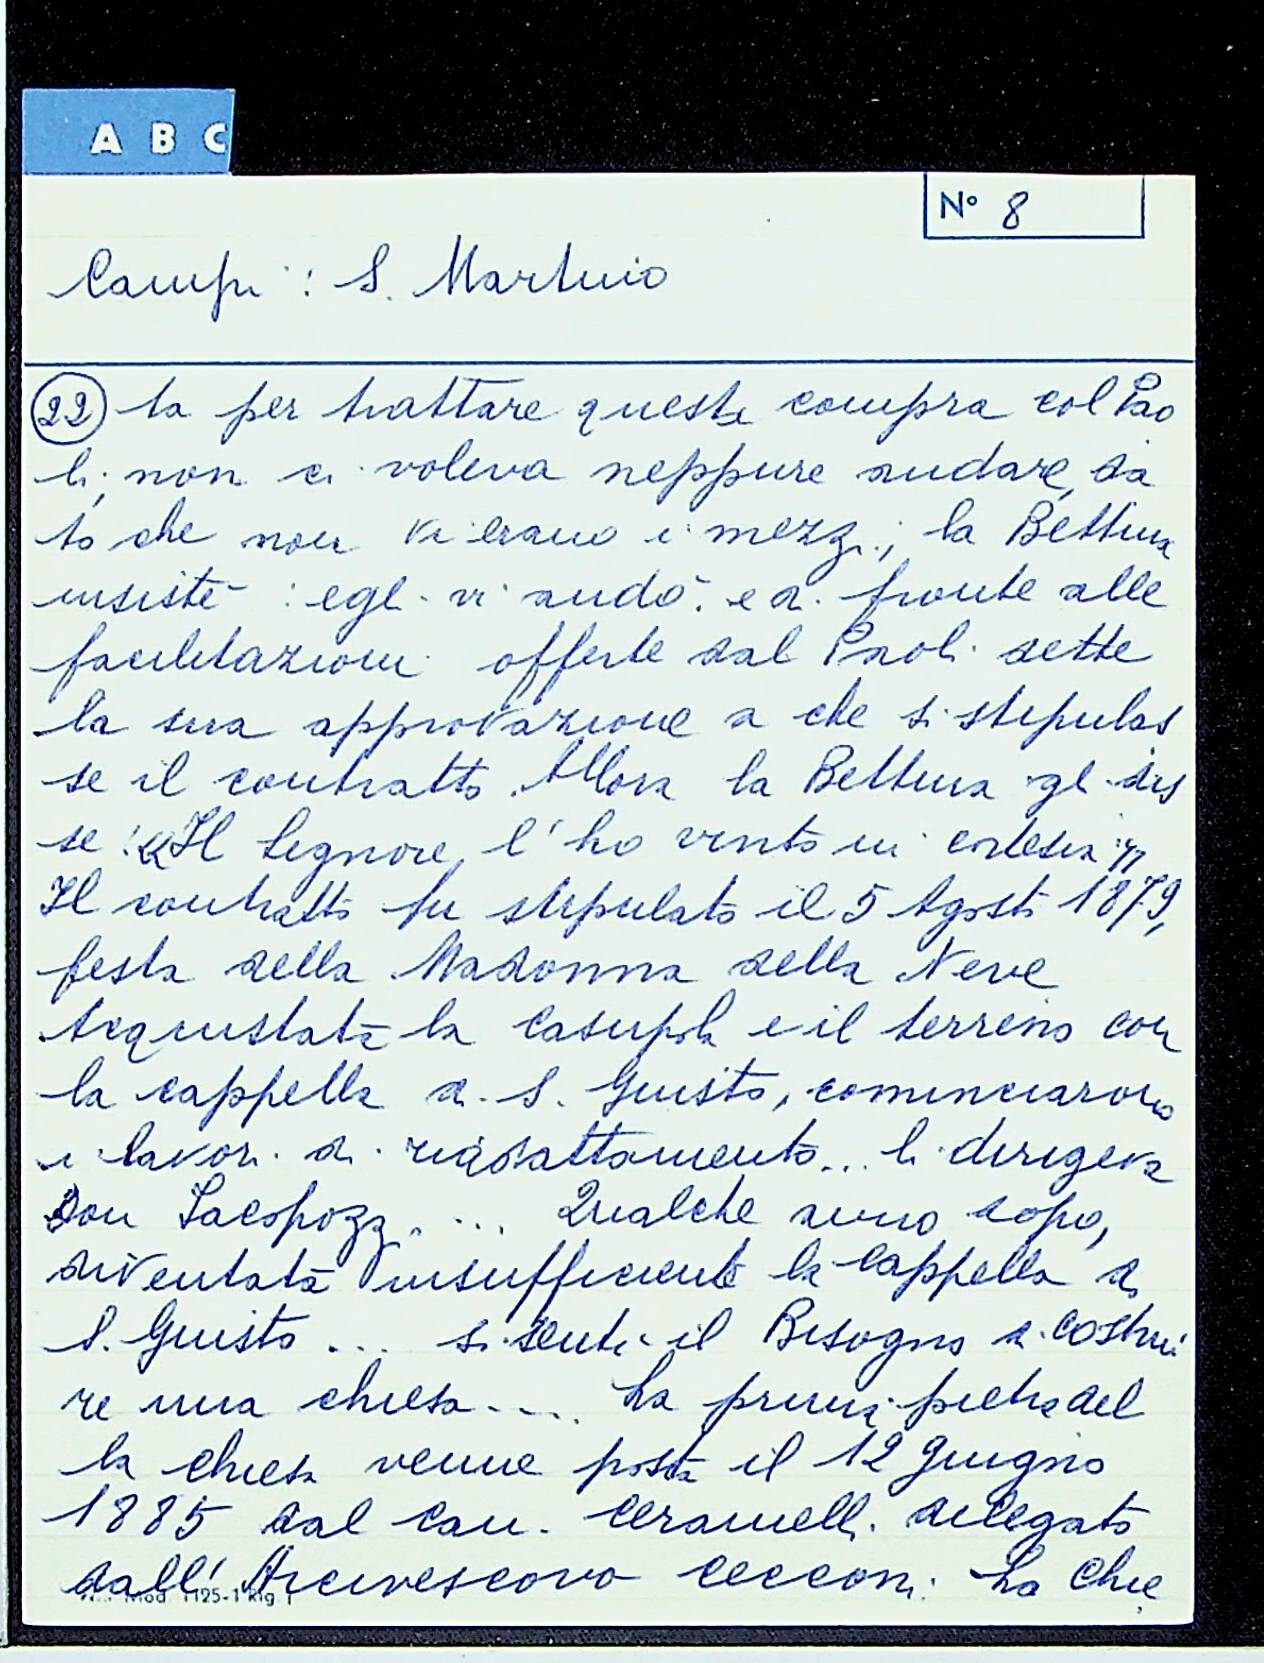 A B C
N° 8
Campi: S. Martino
22 ta per trattare questa compra col Pao
li, non ci voleva neppure andare, da
to che non vi erano i mezzi; la Bettina
insisté: egli vi andò: e di fronte alle
facilitazioni offerte dal Paoli dette
la sua approvazione a che si stipulas
se il contratto. Allora la Bettina gli dis
se: «Il Signore, l'ho vinto in
Il contratto fu stipulato il 5 Agosto 1879,
festa della Madonna della Neve
Acquistata la casupola e il terreno con
la cappella di S. Giusto, cominciarono
i lavori di riadattamento... li dirigeva
Don Iacopozzi.... Qualche anno dopo,
diventata insufficiente la Cappella di
S. Giusto ... si sentì il Bisogno di costrui
re una chiesa.... La prima pietra del
la chiesa venne posta il 12 Giugno
1885 dal can. Ceramelli delegato
dall'Arcivescovo Cecconi. La Chie
Mod. 1125-1 Rig.